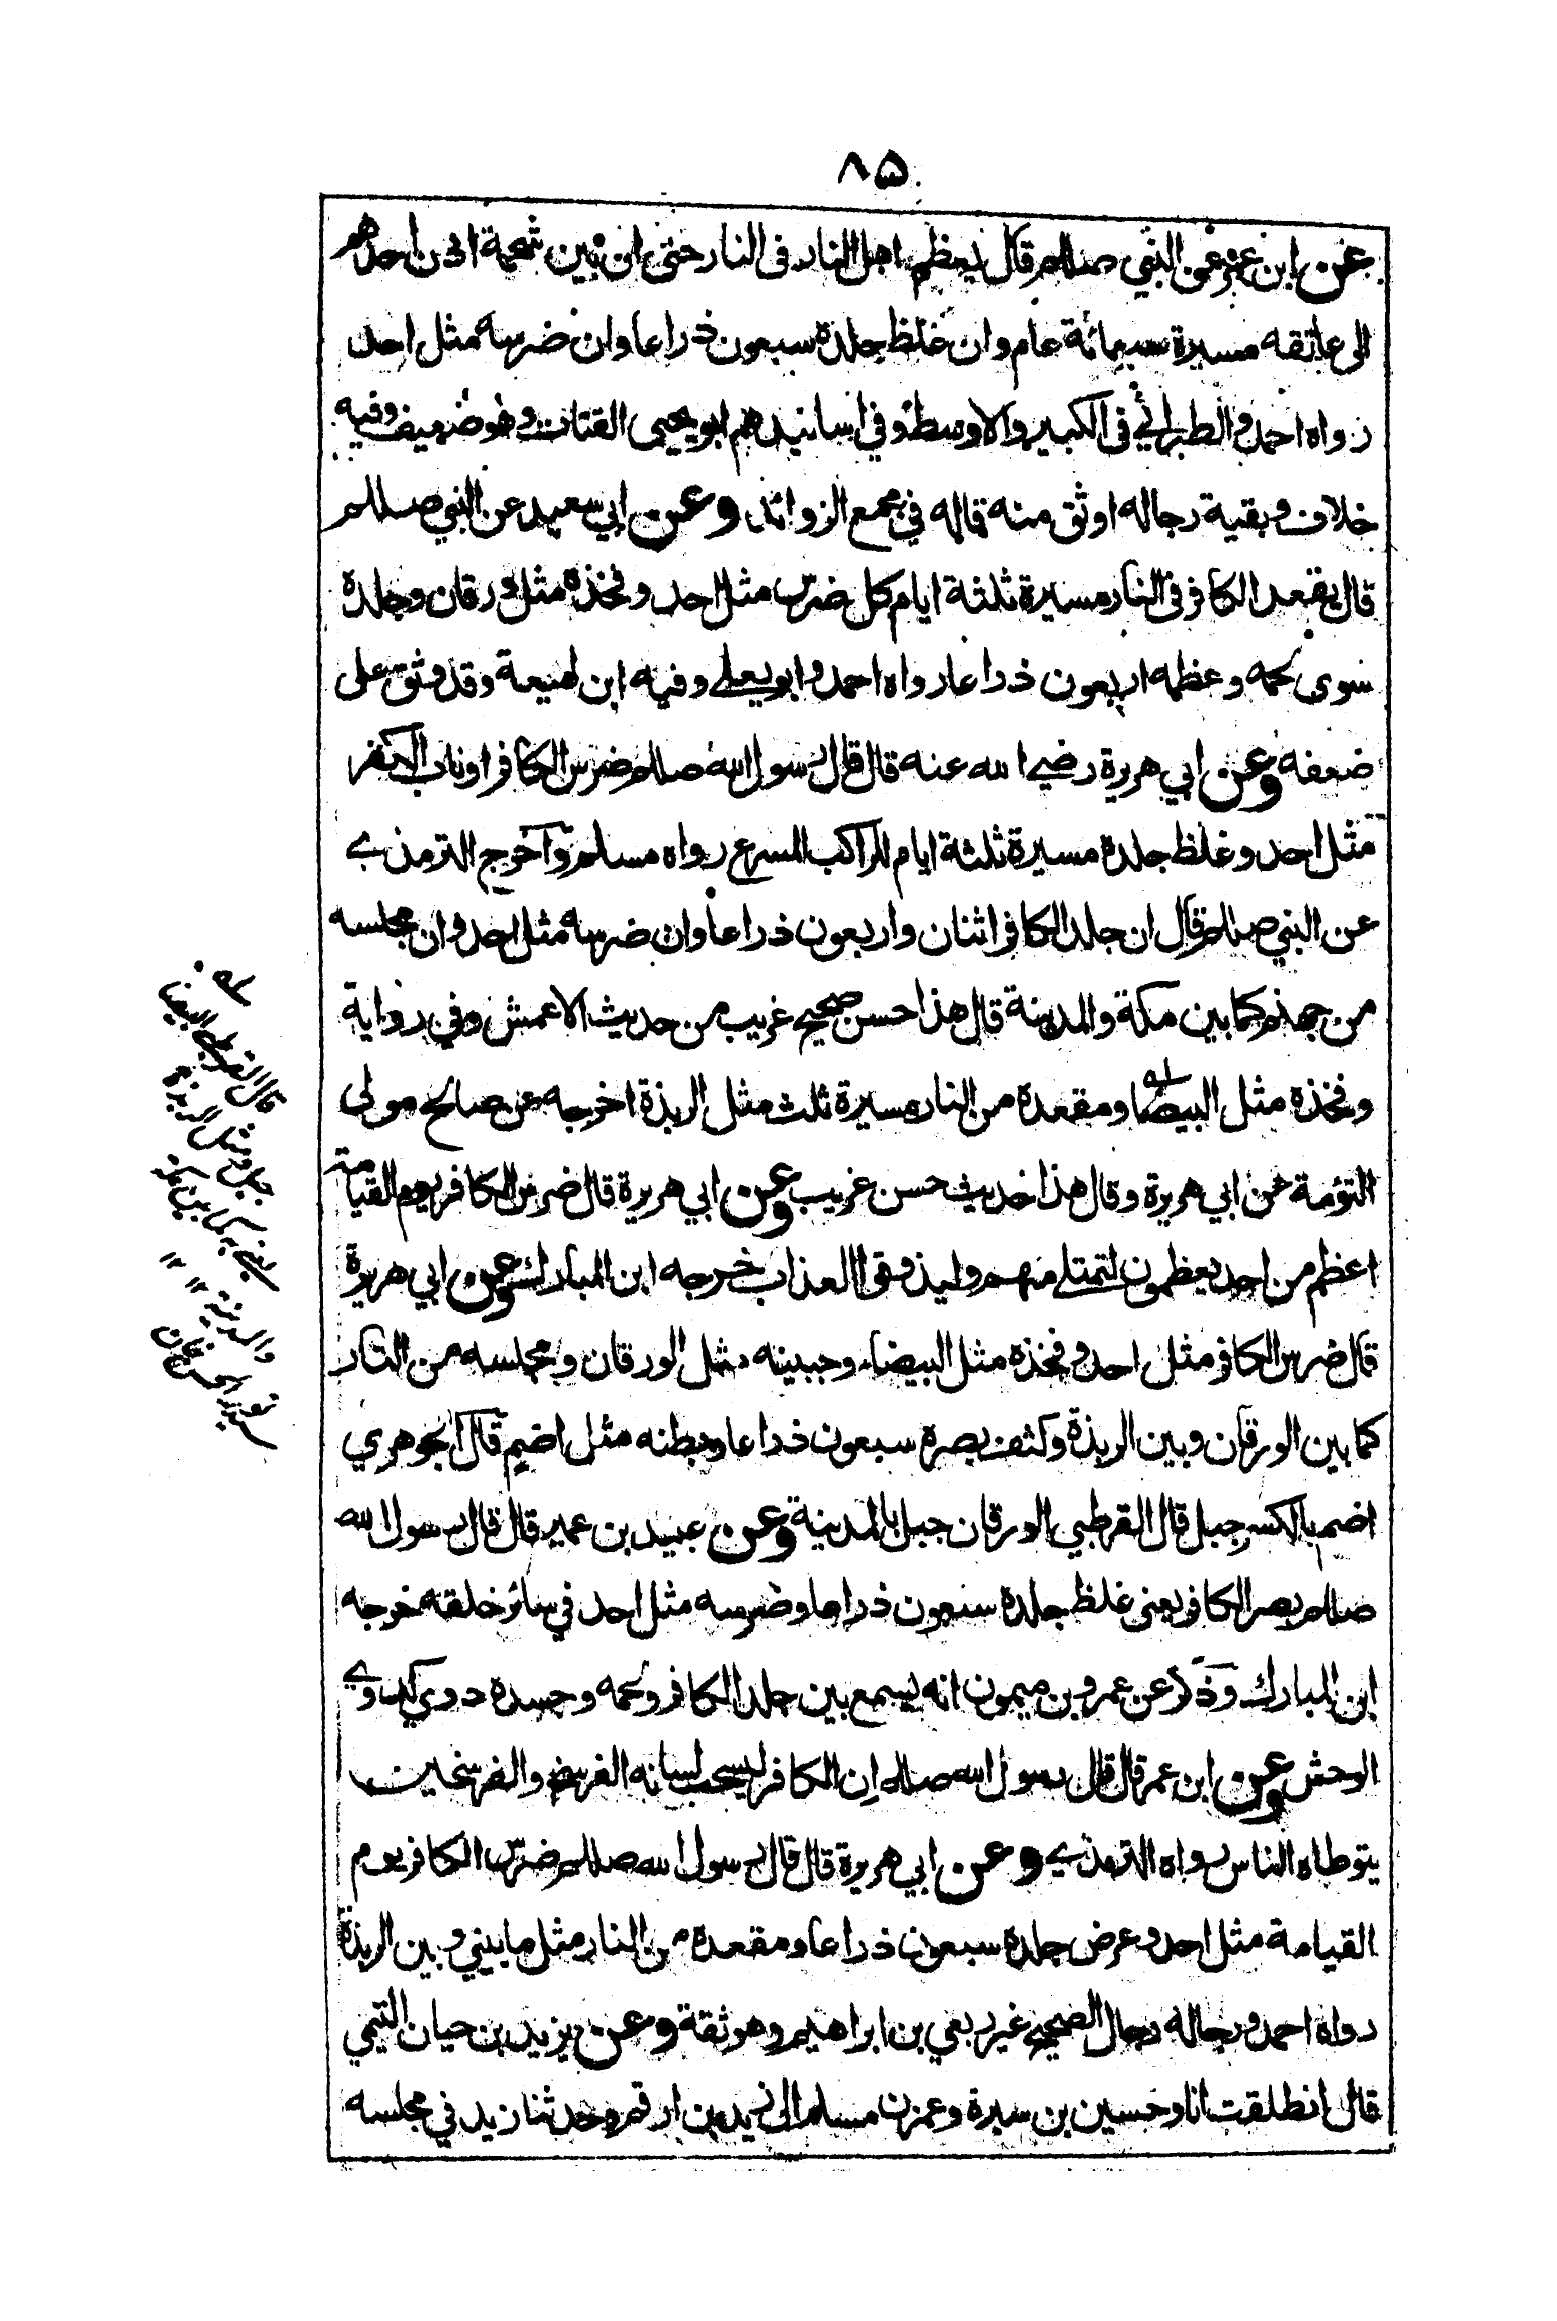 ٨٥
عن ابن عمر عن النبي صللم قال يعظم اهل النار فى النار حتى ان بين شحمة اذن احدهم
الى عاتقه مسيرة سبعمائة عام وان غلظ جلده سبعون ذراعا وان ضرسه مثل احد
رواه احمد والطبراني فى الكبير والاوسط وفي اسانيدهم ابو يحيى القتات وهو ضعيف وفيه
خلاف وبقية رجاله اوثق منه قاله في مجمع الزوائد وعن ابي سعيد عن النبي صللم
قال يقعد الكافر فى النار مسيرة ثلثة ايام كل ضرس مثل احد وفخذه مثل ورقان وجلده
سوى لحمه وعظمه اربعون ذراعا رواه احمد وابو يعلى وفيه ابن لهيعة وقد وثق على
ضعفه وعن ابي هريرة رضي الله عنه قال قال رسول الله صللم ضرس الكافر او ناب الكافر
مثل احد وغلظ جلده مسيرة ثلثة ايام للراكب المسرع رواه مسلم وآخرج الترمذي
عن النبي صللم قال ان جلد الكافر اثنان واربعون ذراعا وان ضرسه مثل احد وان مجلسه
من جهنم كما بين مكة والمدينة قال هذا حسن صحيح غريب من حديث الاعمش وفي رواية
وفخذه مثل البيضا ومقعده من النار مسيرة ثلث مثل الربذة اخرجه عن صالح مولى
التؤمة عن ابي هريرة وقال هذا حديث حسن غريب وعن ابي هريرة قال ضرس الكافر يوم القيامة
اعظم من احد يعظمون لتمتلي منهم وليذوقوا العذاب خرجه ابن المبارك وعن ابي هريرة
قال ضرس الكافر مثل احد وفخذه مثل البيضاء وجبينه مثل الورقان ومجلسه من النار
كما بين الورقان وبين الربذة وكثف بصره سبعون ذراعا وبطنه مثل اضم قال الجوهري
اضم بالكسر جبل قال القرطبي الورقان جبل بالمدينة وعن عبيد بن عمير قال قال رسول الله
صللم بصر الكافر يعنى غلظ جلده سبعون ذراعا وضرسه مثل احد في سائر خلقه خرجه
ابن المبارك وذكر عن عمرو بن ميمون انه يسمع بين جلد الكافر ولحمه وجسده دوي كدوي
الوحش وعن ابن عمر قال قال رسول الله صللم ان الكافر ليسحب لسانه الفرسخ والفرسخين
يتوطاه الناس رواه الترمذي وعن ابي هريرة قال قال رسول الله صللم ضرس الكافر يوم
القيامة مثل احد وعرض جلده سبعون ذراعا ومقعده من النار مثل ما بيني وبين الربذة
رواه احمد ورجاله رجال الصحيح غير ربعي بن ابراهيم وهو ثقة وعن يزيد بن حيان التيمي
قال انطلقت انا وحسين بن سبرة وعمر بن مسلم الى زيد بن ارقم وحدثنا زيد في مجلسه
قال القرطبي البيضا
جبل ومثل الربذة
يعني به كما بين مكة
والمدينة ١٢ ١٢